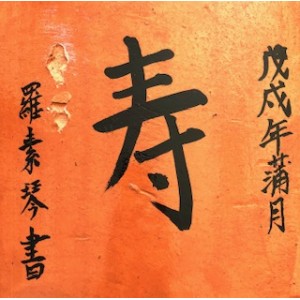 戊戌年蒲月
寿
羅素琴書